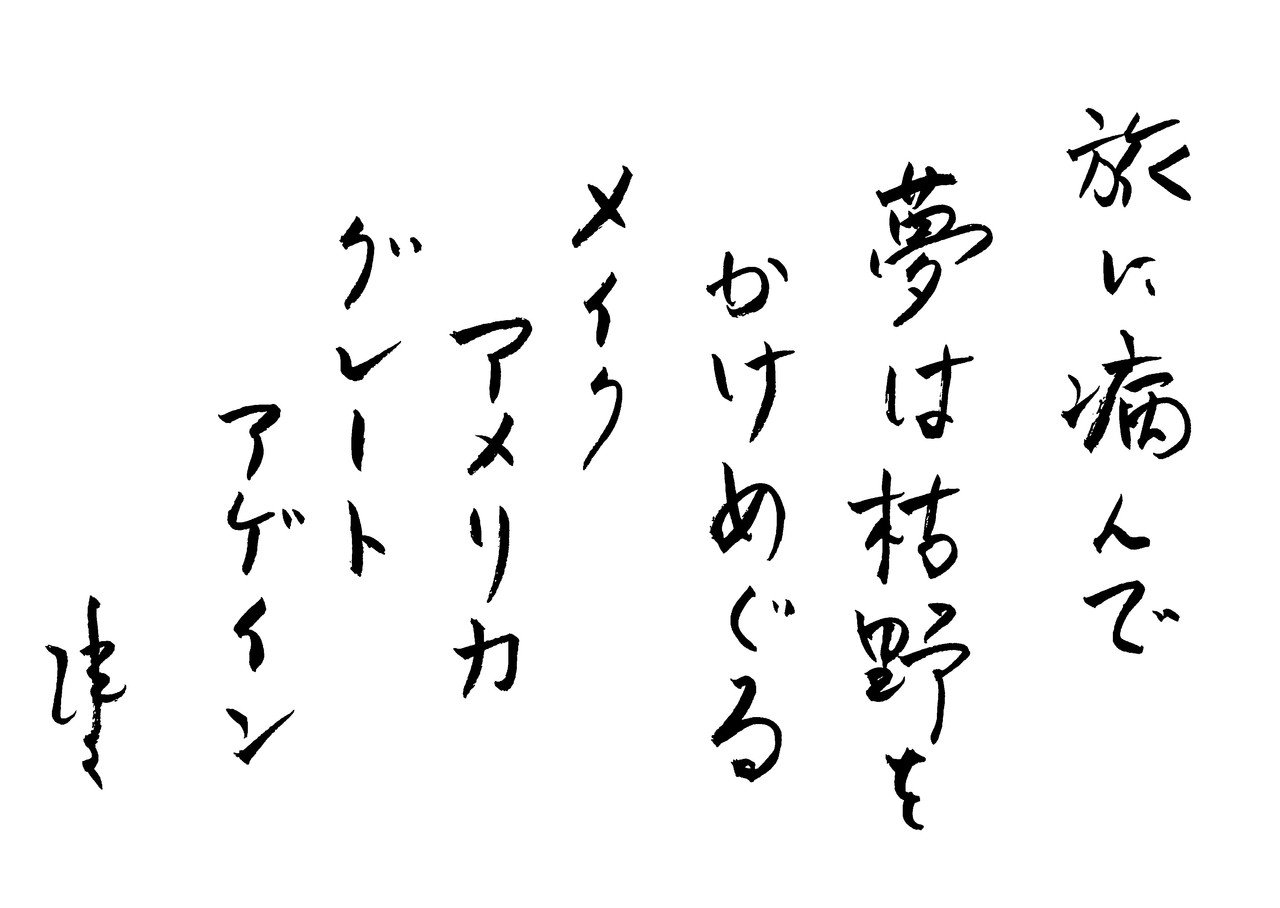 旅に病んで
夢は枯野を
かけめぐる
メイク
アメリカ
グレート
アゲイン